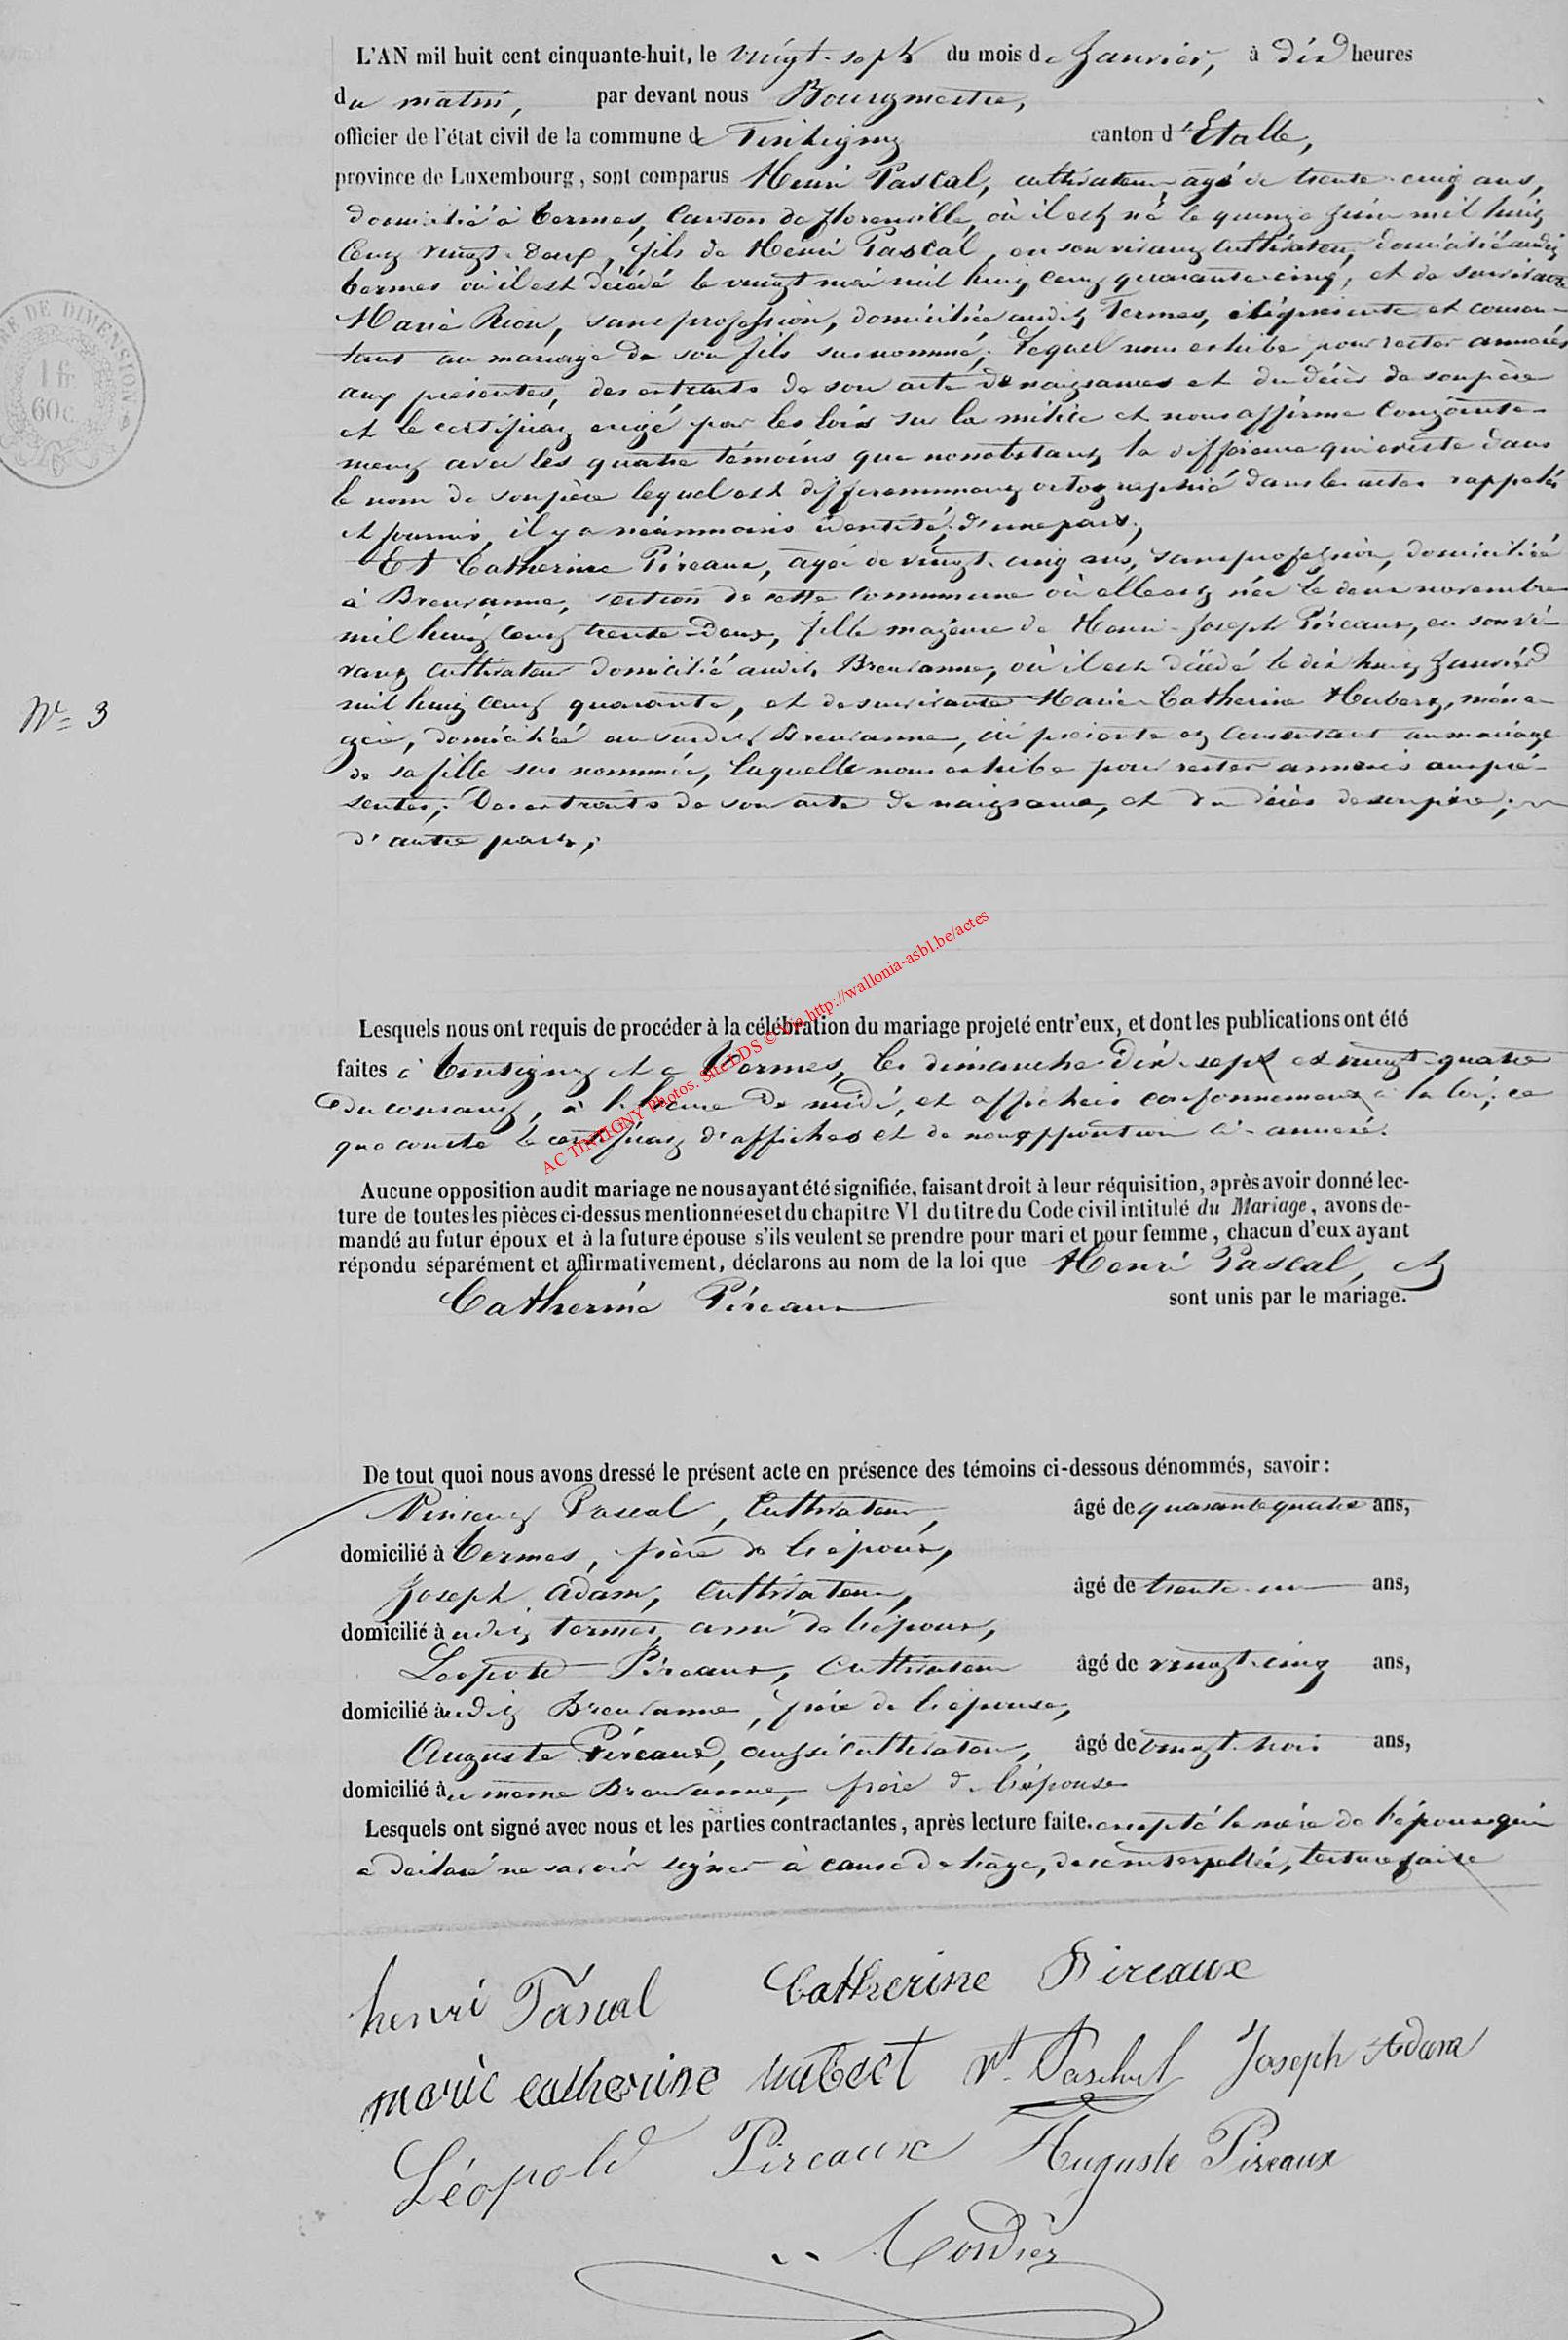 L'AN mil huit cent cinquante-huit, le vingt-sept du mois de Janvier, à dix heures
du matin, par devant nous Bourgmestre,
officier de l'état civil de la commune de Tintigny canton d'Etalle,
province de Luxembourg, sont comparus Henri Pascal, cultivateur, agé de trente-cinq ans,
domicilié à termes, Canton de florenville, où il est né le quinze Juin mil huit
Cent vingt-Deux, fils de Henri Pascal, en son vivant Cultivateur, domicilié audit
termes où il est décédé le vingt mai mil huit Cent quarante cinq, et de survivante
Marie Rion, sans profession, domiciliée audit Termes, ici présente et consen-
tant au mariage de son fils susnommé; lequel nous exhibe pour rester annexés
aux présentes, des extraits de son acte de naissance et du décès de son père
et le certificat exigé par les lois sur la milice et nous affirme Conjointe-
ment avec les quatre témoins que nonobstant la différence qui existe dans
le nom de son père lequel est différemment ortographié dans les actes rappelés
et fournis, il y a néanmoins identité, d'une part,
Et Catherine Pireaux, agée de vingt-cinq ans, sans profession, domiciliée
à Breuvanne, section de cette Commune où elle est née le deux novembre
mil huit Cent trente-Deux, fille majeure de Henri-Joseph Pireaux, en son vi-
vant Cultivateur domicilié audit Breuvanne, où il est décédé le dix huit Janvier
mil huit Cent quarante, et de survivante Marie-Catherine Hubert, ména-
gère, domiciliée au susdit Breuvanne, ici présente et Consentant au mariage
de sa fille sus nommée, laquelle nous exhibe pour rester annexés aux pré-
sentes; Des extraits de son acte de naissance, et du décès de son père;
d'autre part;
N° 3
RE DE DIMENSION
1 fr.
60 c.
Lesquels nous ont requis de procéder à la célébration du mariage projeté entr'eux, et dont les publications ont été
faites à tintigny et à termes, les dimanche Dix-sept et vingt-quatre
du courant, à l'heure de midi, et affichées conformément à la loi; ce
que conste le certificat d'affiches et de non opposition ci-annexé.
AC TINTIGNY Photos. Site LDS © Via http://wallonia-asbl.be/actes
Aucune opposition audit mariage ne nous ayant été signifiée, faisant droit à leur réquisition, après avoir donné lec-
ture de toutes les pièces ci-dessus mentionnées et du chapitre VI du titre du Code civil intitulé du Mariage, avons de-
mandé au futur époux et à la future épouse s'ils veulent se prendre pour mari et pour femme, chacun d'eux ayant
répondu séparément et affirmativement, déclarons au nom de la loi que Henri Pascal, et
Catherine Pireaux sont unis par le mariage.
De tout quoi nous avons dressé le présent acte en présence des témoins ci-dessous dénommés, savoir:
Vincent Pascal, Cultivateur, âgé de quarante quatre ans,
domicilié à termes, frère de l'époux,
Joseph Adam, Cultivateur, âgé de trente-un ans,
domicilié audit termes, ami de l'époux,
Léopold Pireaux, Cultivateur âgé de vingt-cinq ans,
domicilié audit Breuvanne, frère de l'épouse,
Auguste Pireaux, aussi cultivateur, âgé de vingt-trois ans,
domicilié au même Breuvanne, frère de l'épouse
Lesquels ont signé avec nous et les parties contractantes, après lecture faite. excepté la mère de l'époux qui
a déclaré ne savoir signer à cause de l'âge, de ce interpellée, lecture faite
henri Pascal Catherine Pireaux
marie catherine hubert Vt Paschal Joseph Adam
Léopold Pireaux Auguste Pireaux